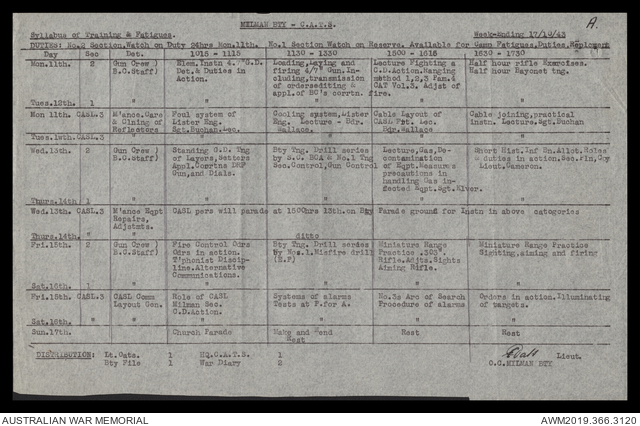 MILMAN BTY - C.A.T.S.
A.
Syllabus of Training & Fatigues. Week-Ending 17/10/43
DUTIES: No.2 Section.Watch on Duty 24hrs Mon.11th. No.1 Section Watch on Reserve. Available for Camp Fatigues,Duties,
Day Sec Det. 1015 - 1115 1130 - 1230 1500 - 1615 1630 - 1730
Mon.11th. 2 Gun Crew ) Elem.Instn 4.7" C.D. Loading,Laying and Lecture Fighting a Half hour rifle Exercises.
B.C.Staff) Det.& Duties in firing 4/7" Gun.In- C.D.Action.Ranging Half hour Bayonet tng.
Action. cluding,transmission method 1,2,3 Fam.4
of orders CAT Vol.3. Adjst of
appl.of BC's corrtn. fire.
Tues.12th. 1 " " " "
Mon 11th. CASL.3 M'ance.Care Foul system of Cooling system,Lister Cable Layout of Cable joining,practical
& Clning of Lister Eng. Eng. Lecture - Bdr. CASL Lec. instn. Lecture,Sgt.Buchan
Reflectors Sgt.Buchan.Lec. Wallace. Bdr.Wallace
Tues.12th. CASL. " " " "
Wed.13th. 2 Gun Crew ) Standing G.D. Tng Bty Tng. Drill series Lecture,Gas,De- Short Hist.Inf Sn.Allot.Roles
B.C.Staff) of Layers,Setters by B.C. BCA & No.1 Tng contamination & duties in action.Sec.Pln,Coy
Appl.Corrtns DRP Sec.Control,Gun Control of Eqpt.Measures Lieut.Cameron.
Gun,and Dials. precautions in
handling Gas in-
fected Eqpt.Sgt.Elver.
Thurs.14th 1 " " " "
Wed.13th. CASL.3 M'ance Eqpt CASL pers will parade at 1500hrs 13th.on Bty Parade ground for Instn in above categories
Repairs.
Adjstmts.
Thurs.14th. " ditto
Fri.15th. 2 Gun Crew ) Fire Control Odrs Bty Tng. Drill series Miniature Range Miniature Range Practice
B.C.Staff) Odrs in action. by Nos.1.Misfire drill Practice .303". Sighting,aiming and firing
T'phonist Discip- (H.P) Rifle.Adjts.Sights
line.Alternative Aiming Rifle.
Communications.
Sat.16th. 1 " " " "
Fri.15th. CASL.3 CASL Comm Role of CASL Systems of alarms No.3s Arc of Search Orders in action.Illuminating
Layout Gen. Milman Sec. Tests at P.for A. Procedure of alarms of targets.
C.D.Action.
Sat.16th. " " " " "
Sun.17th. Church Parade Make and Mend Rest Rest
Rest
DISTRIBUTION: Lt.Oats. 1 HQ.C.A.T.S. 1 Lieut.
Bty File 1 War Diary 2 O.C.MILMAN BTY
AUSTRALIAN WAR MEMORIAL AWM2019.366.3120